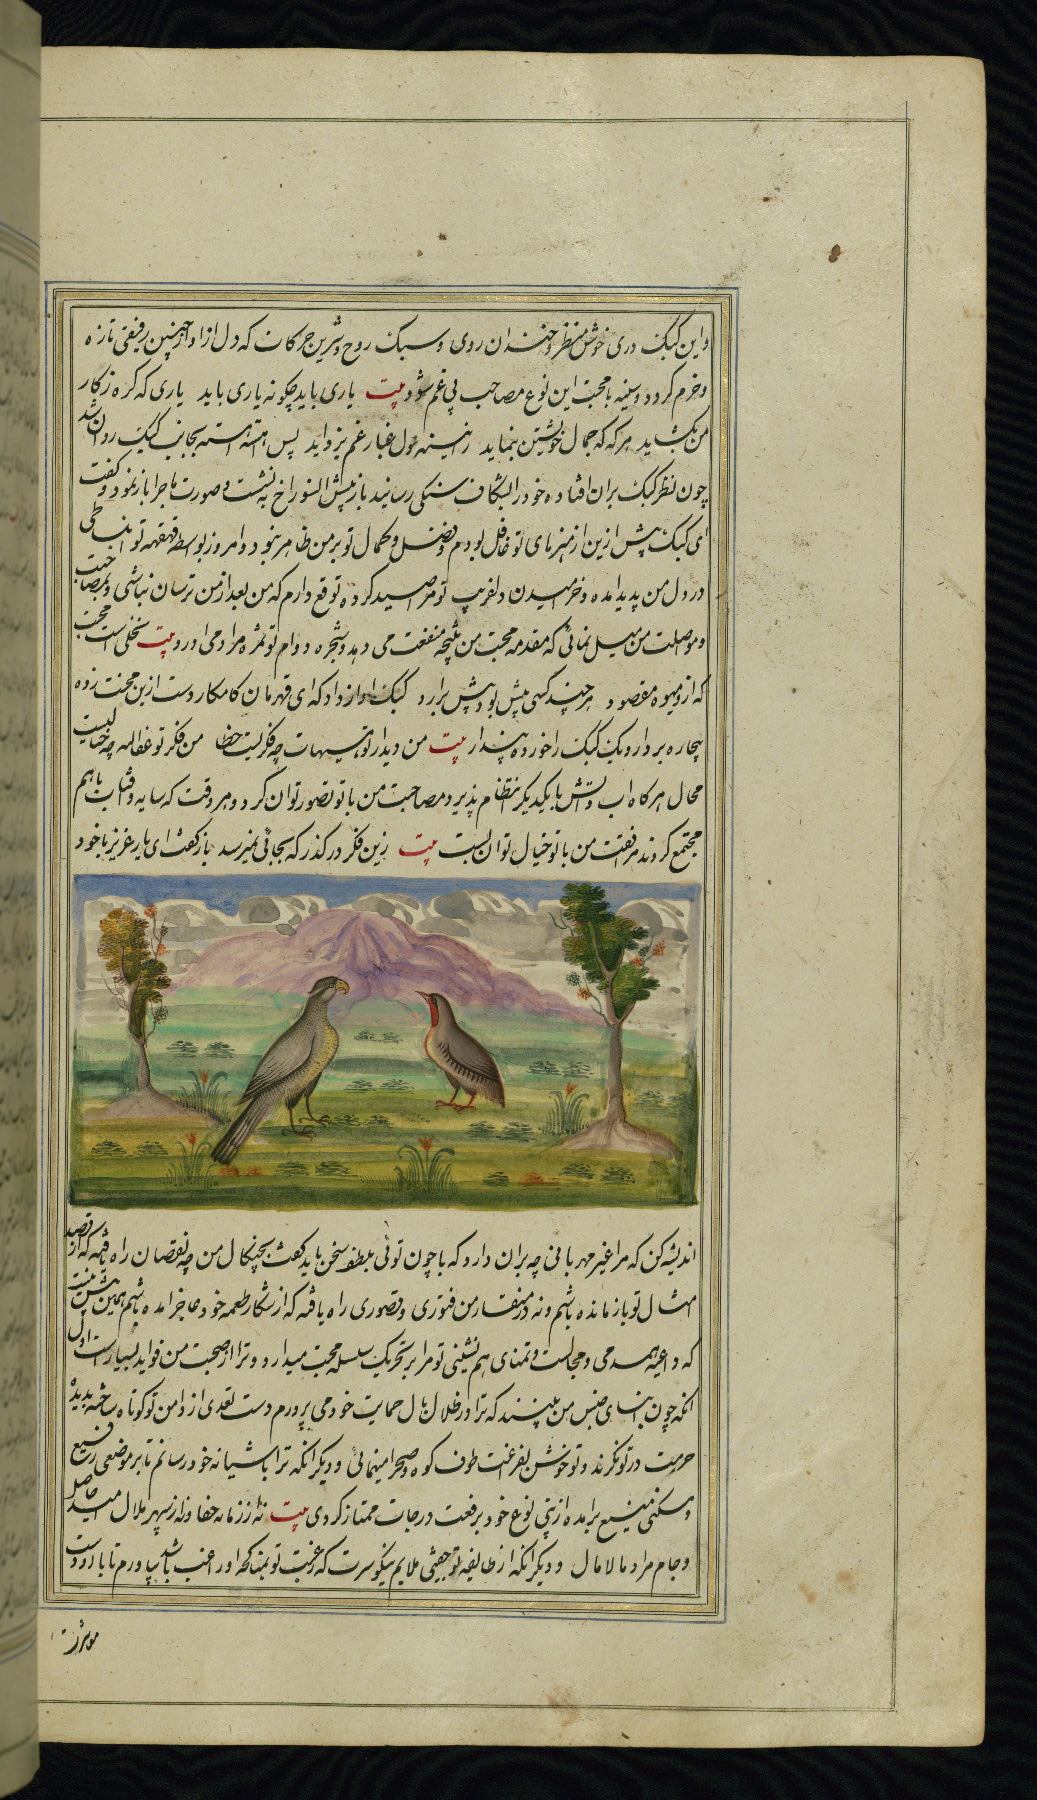 و این کبک دری خوش منظر و خندان روی و سبک روح و شیرین حرکات که دل از آواز چنین رفیقی تازه
و خرم گردد و سینه بامحبت این نوع مصاحب بی غم شود بیت یاری باید چگونه یاری باید یاری که گره ز کار
من بگشاید هر که که جمال خویشتن بنماید ز آیینه دل غبار غم بزداید پس آهسته آهسته بجانب کبک روان شد
چون نظر کبک بران افتاد خود را بشکاف سنگی رسانید باز پیش آن سوراخ به نشست و صورت ماجرا باز نمود و گفت
ای کبک پیش ازین از هنرهای تو غافل بودم و فضل و کمال تو بر من ظاهر نبود و امروز بواسطه قهقهه تو انبساطی
در دل من پدید امده و خرامیدن دلفریب تو مرا صید کرده توقع دارم که من بعد از من ترسان نباشی و بمصاحبت
و مواصلت من میل نمائی که مقدمه محبت من نتیجه منفعت می دهد و شجره دوام تو ثمره مراد می آورد بیت نخلی است محبت
که ازو میوه مقصود هر چند کسی بیش بود بیش برارد کبک آواز داد که ای قهرمان کامکار دست ازین محنت زده
بیچاره بردار و یک کبک را خورده پندار بیت من و دیدار تو هیهات چه فکریست خطا من و فکر تو عفا الله چه خیالیست
محال هرگاه اب و آتش بایکدیگر انتظام پذیرد مصاحبت من با تو تصور توان کرد و هر وقت که سایه و آفتاب باهم
مجتمع گردند مرافقت من با تو خیال توان بست بیت زین فکر درگذر که بجائی نمیرسد باز گفت ای یار عزیز باخود
اندیشه کن که مرا غیر مهربانی چه بران دارد که با چون توئی بلطف سخن باید گفت بچنگال من چه نقصان راه یافته که از قصد
امثال تو باز مانده باشم و نه در منقار من فتوری و قصوری راه یافته که از شکار طعمه خود عاجز امده باشم همین بیش نیست
که داعیه همدمی و مجالست و تمنای هم نشینی تو مرا بر تحریک سلسله محبت میدارد و ترا از صحبت من فواید بسیار است اول
انکه چون ابنای جنس من بینند که ترا در ظلال بال حمایت خود می پرورم دست تعدی از دامن تو کوتاه ساخته بدیده
حرمت در تو نگرند و تو خوش بفراغت طوف کوه و صحرا مینمائی و دیگر انکه ترا باشیانه خود رسانم تا بر موضعی رفیع
و مسکنی منیع برامده از بنی نوع خود برفعت درجات ممتاز گردی بیت نه از زمانه جفا و نه از سپهر ملال امید حاصل
و جام مراد مالامال و دیگر انکه از طایفه تو جفتی ملایم نیکو سیرت که رغبت تو بمناکحه او راغب باشد بیاورم تا با او دست